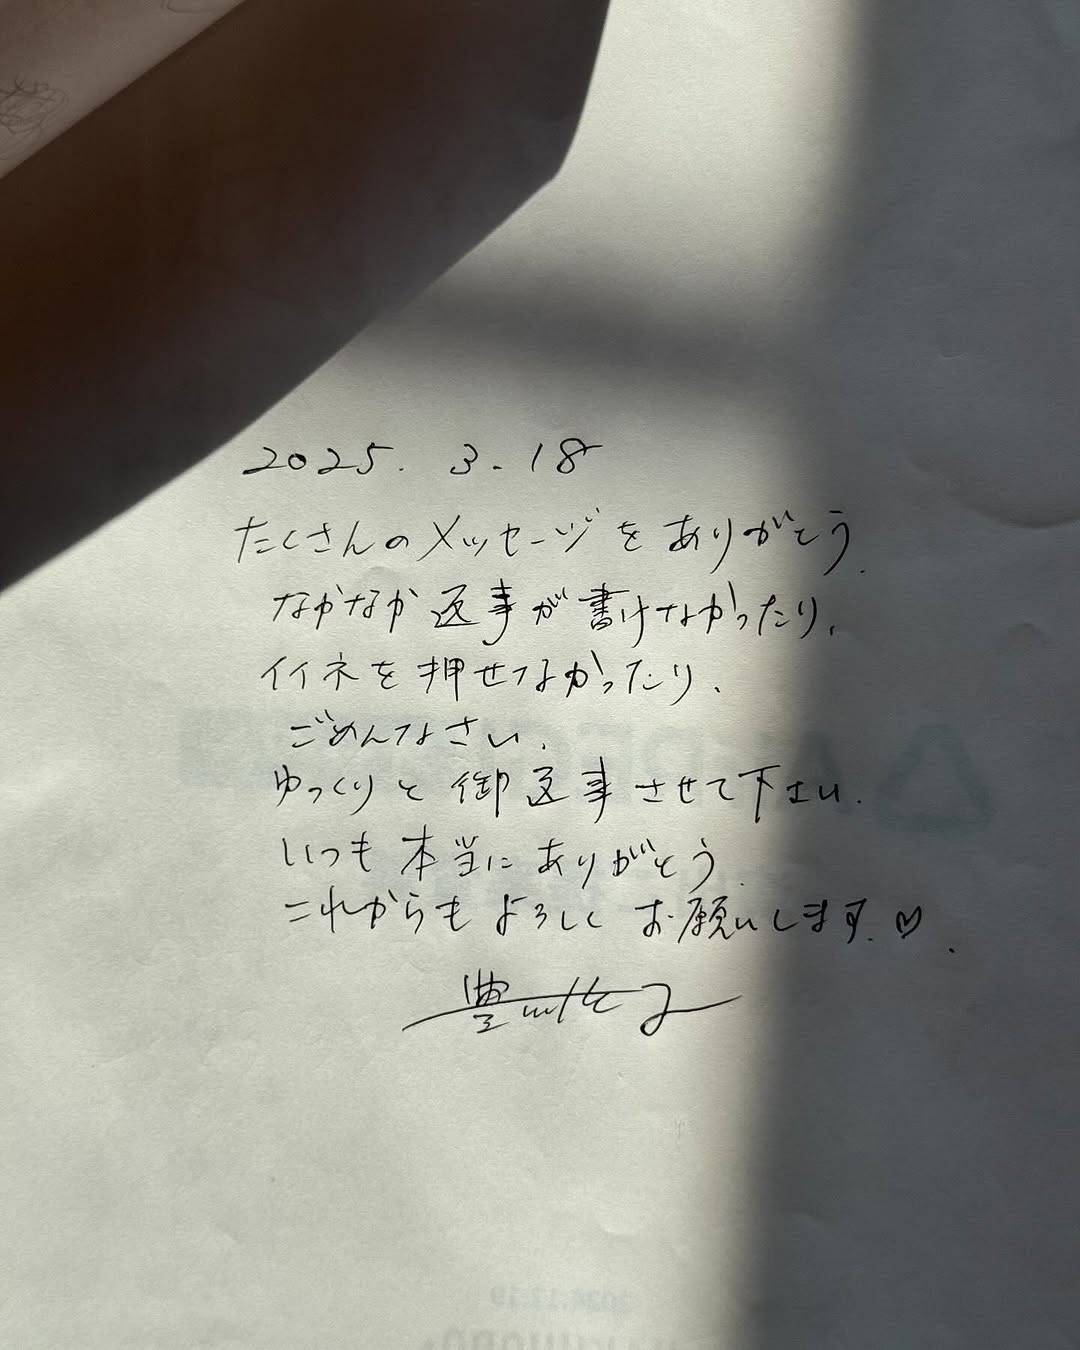 2025. 3.18
たくさんのメッセージをありがとう.
なかなか返事が書けなかったり、
イイネを押せなかったり、
ごめんなさい、
ゆっくりと御返事させて下さい.
いつも本当にありがとう.
これからもよろしくお願いします.♡.